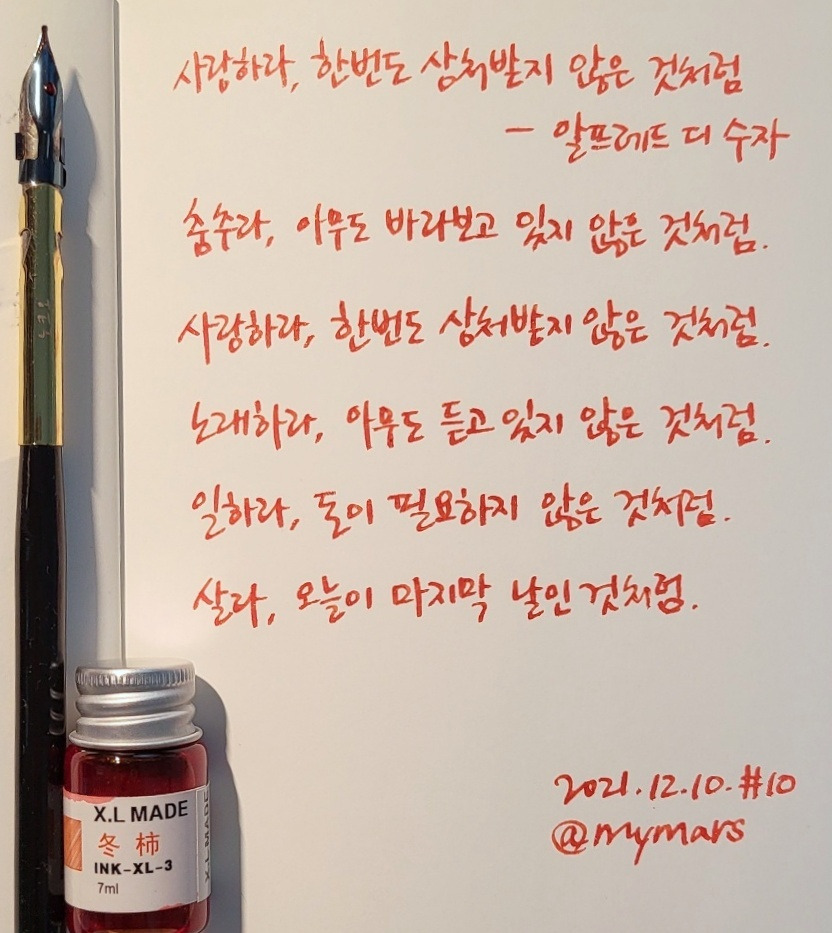 사랑하라, 한번도 상처받지 않은 것처럼
- 알프레드 디 수자
춤추라, 아무도 바라보고 있지 않은 것처럼.
사랑하라, 한번도 상처받지 않은 것처럼.
노래하라, 아무도 듣고 있지 않은 것처럼.
일하라, 돈이 필요하지 않은 것처럼.
살라, 오늘이 마지막 날인 것처럼.
2021.12.10.#10
@mymars
X.L MADE
冬柿
INK-XL-3
7ml
X.L MADE